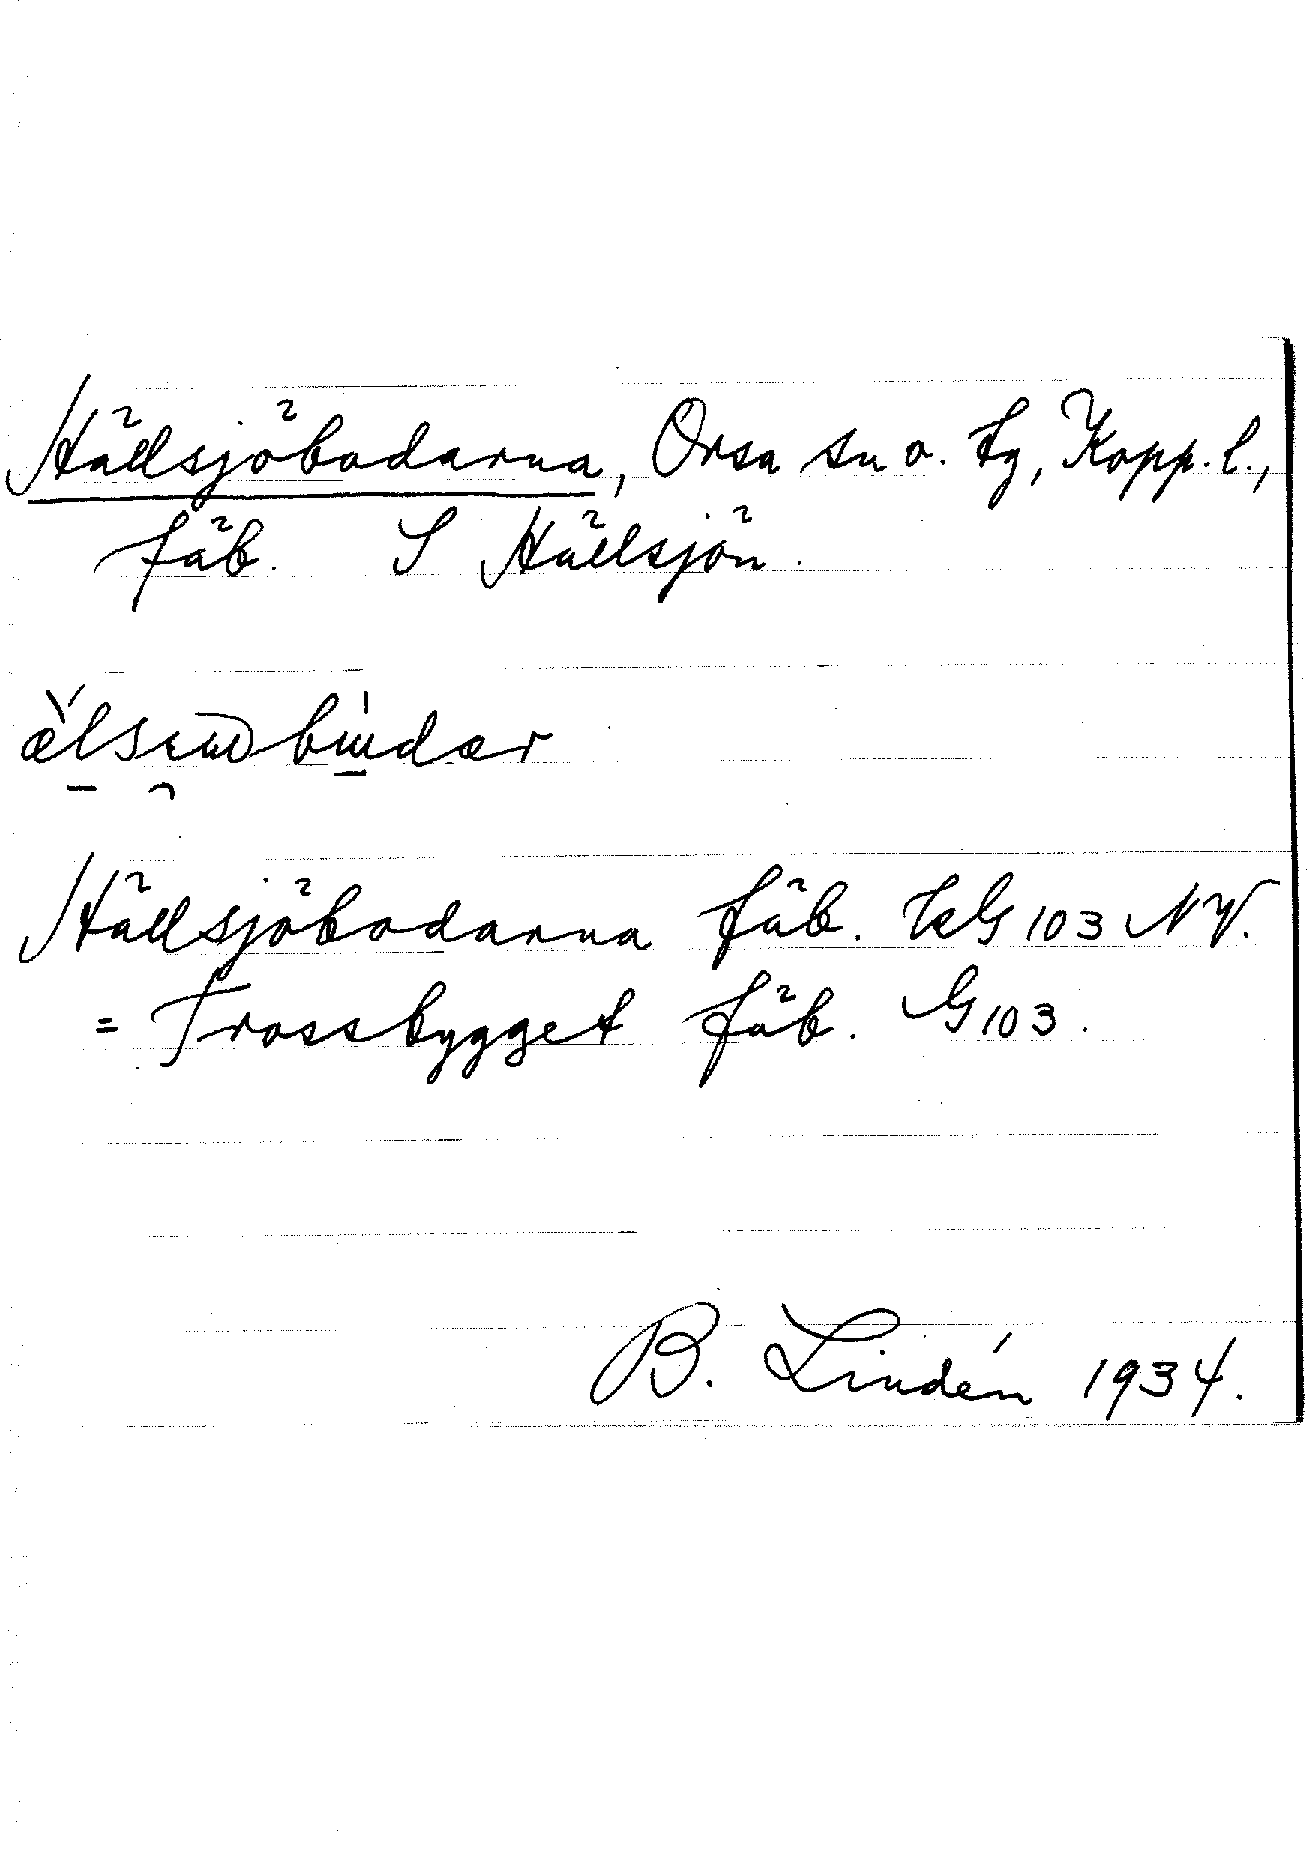 Hällsjöbodarna, Orsa sn o. tg, Kopp. l.,
fäb. S Hällsjön.
Hällsjöbodarna fäb. KG 103 NV.
= Trossbygget fäb. G 103.
B. Lindén 1934.